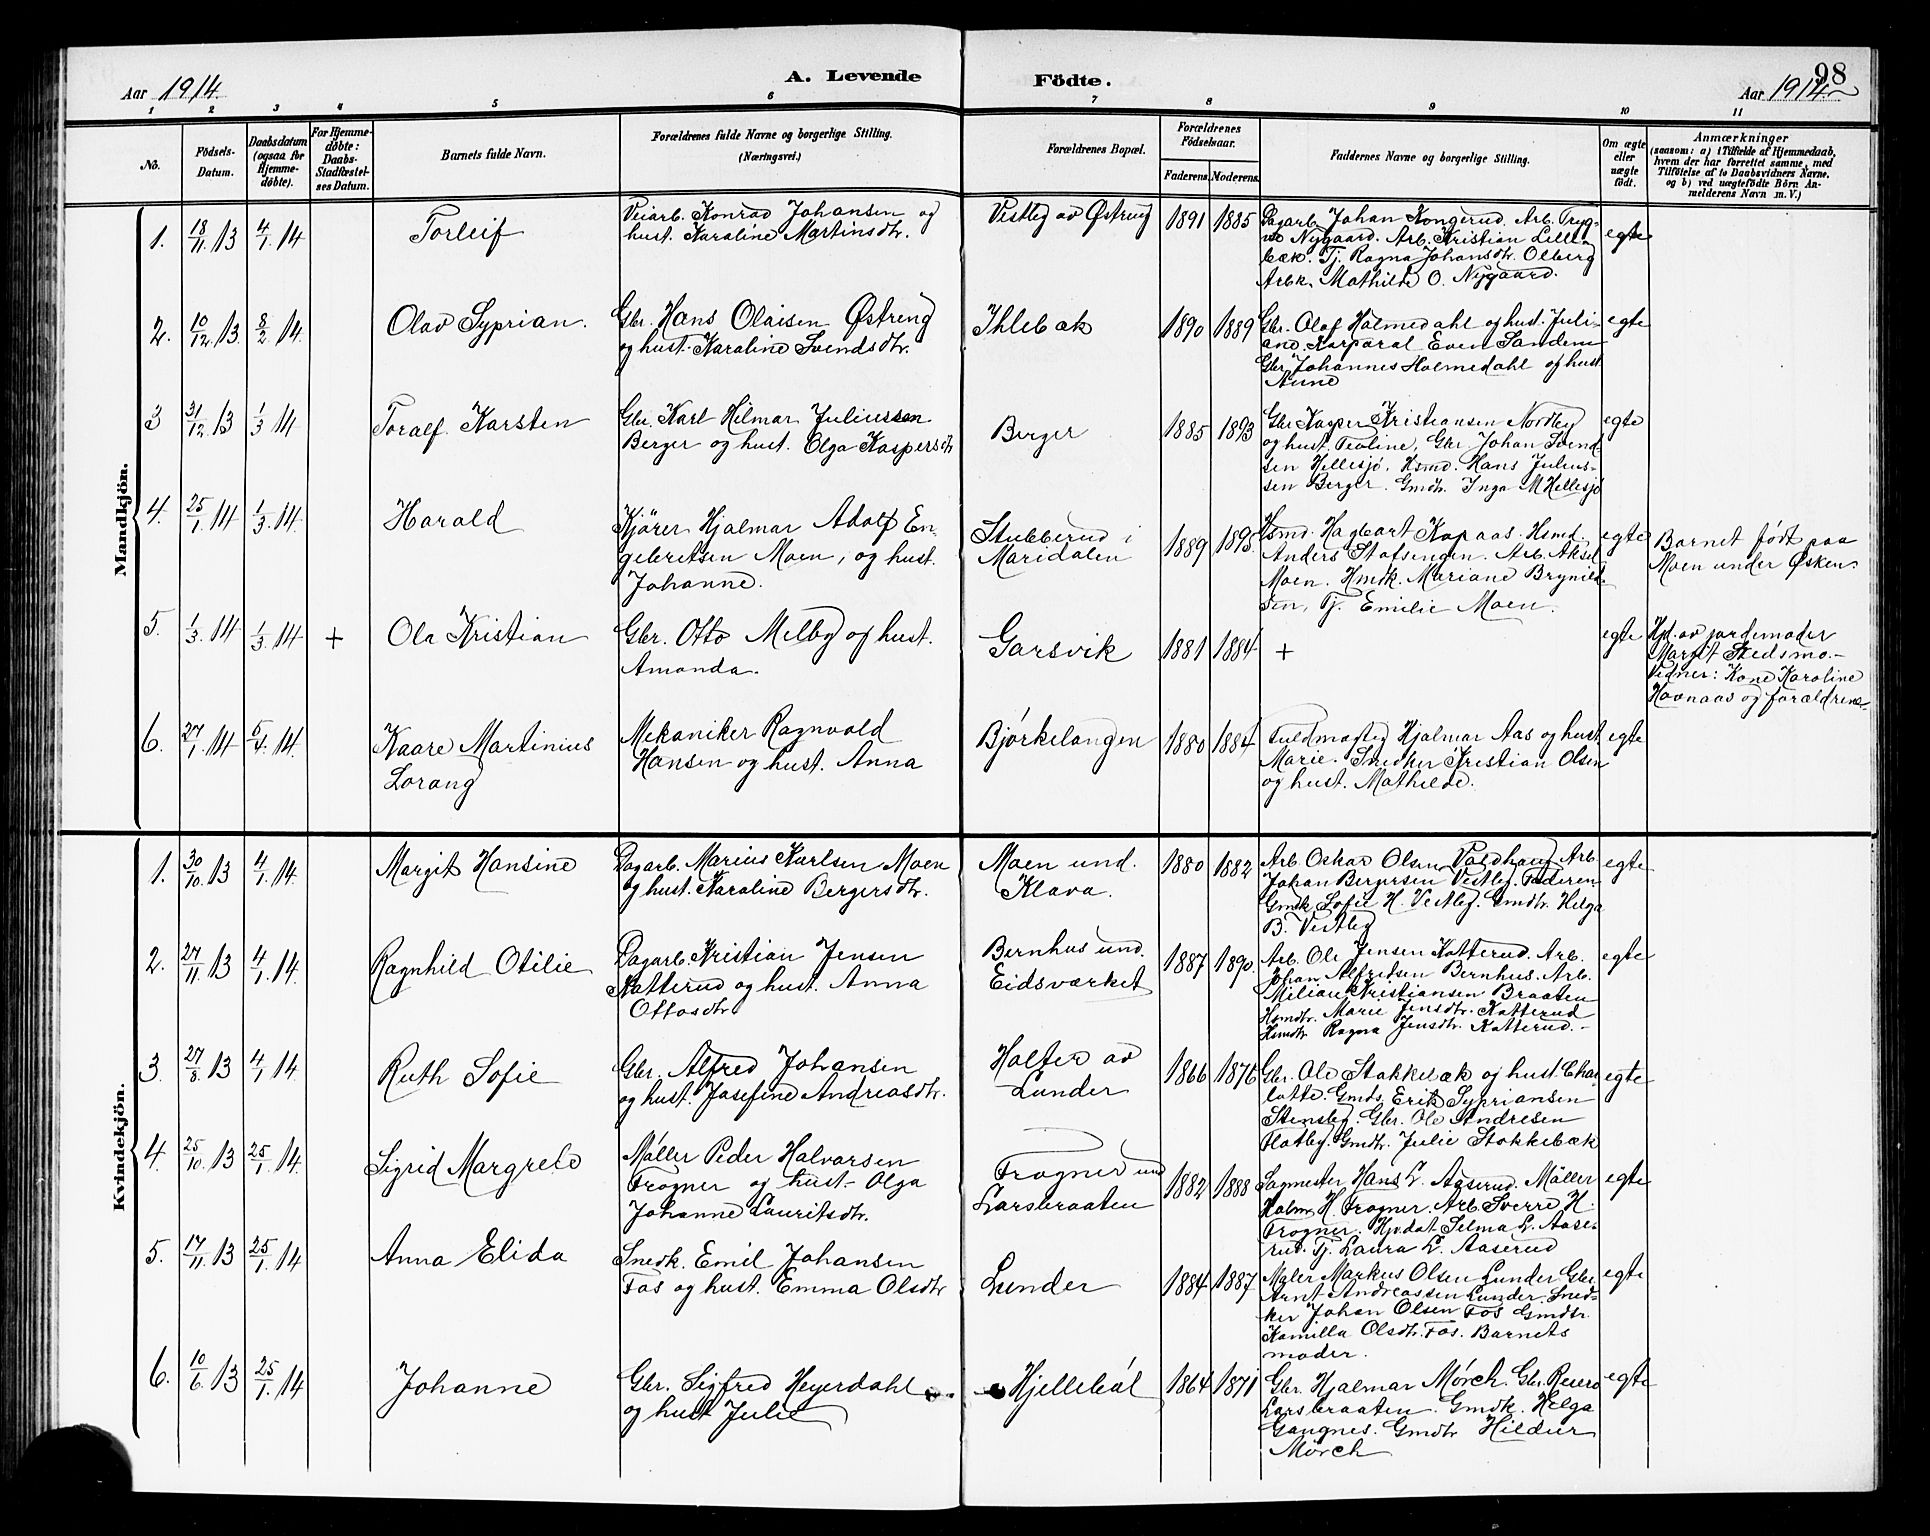 Aar 1914. A. Levende Födte. Aar 1914 98
1 2 3 4 5 6 7 8 9 10 11
No.
Födsels-
Datum.
Daabsdatum
(ogsaa for
Hjemme-
döbte).
For Hjemme-
döbte:
Daabs-
Stadfæstel-
ses Datum.
Barnets fulde Navn.
Forældrenes fulde Navne og borgerlige Stilling.
(Næringsvei.)
Forældrenes Bopæl.
Forældrenes
Födselsaar.
Faderens. Moderens.
Faddernes Navne og borgerlige Stilling.
Om ægte
eller
uægte
födt.
Anmærkninger
(saasom: a) i Tilfælde af Hjemmedaab,
hvem der har forrettet samme, med
Tilföielse af to Daabsvidners Navne,
og b) ved uægtefödte Börn An-
melderens Navn m. V.)
Mandkjön.
1. 18/11 13 4/1 14 Torleif
Veiarb. Konrad Johansen og
hust. Karoline Martinsdtr.
Vestby av Østreng 1891 1885
Dagarb. Johan Kongerud. Arb. Tryg-
ve Nygaard. Arb. Kristian Lille-
bæk. Tj. Ragna Johansdtr. Olberg
Arbk. Mathilde O. Nygaard.
egte
2. 10/12 13. 8/2 14. Olav Syprian.
Gbr. Hans Olaisen Østreng
og hust. Karoline Svendsdtr.
Ihlebæk 1890 1889
Gbr. Olaf Holmedahl og hust. Juli-
ane. Korporal Even Sandem
Gbr. Johannes Holmedahl og hust
Anne
egte
3 31/12 13 1/3 14 Toralf Karsten
Gbr. Karl Hilmar Juliussen
Berger og hust. Olga Kaspersdtr
Berger 1885 1893
Gbr Kasper Kristiansen Nordby
og hust. Teoline, Gbr. Johan Svend-
sen Hellesjø. Hsmd. Hans Julius-
sen Berger. Gmdtr. Inga M Hellesjø
egte
4. 25/1 14 1/3. 14. Harald
Kjører Hjalmar Adolf En-
gebretsen Moen, og hust.
Johanne.
Stubberud i
Maridalen 1889 1895
Hsmd. Hagbart Kopaas. Hsmd.
Anders Stofsengen. Arb. Aksel
Moen. Hmdk. Mariane Brynild-
sen, Tj. Emilie Moen.
egte
Barnet født paa
Moen under Østen.
5. 1/3. 14 1/3 14 + Ola Kristian
Gbr. Otto Melby og hust.
Amanda.
Garsvik 1881 1884 +
egte
Hjd. av jordemoder
Margit Stedsmo.-
Vidner: Kone Karoline
Hovnaas og forældrene.
6. 27/1 14 5/4. 14. Kaare Martinius
Lorang
Mekaniker Ragnvald
Hansen og hust. Anna
Bjørkelangen 1880 1884
Fuldmægtig Hjalmar Aas og hust.
Marie. Snedker Kristian Olsen
og hust. Mathilde.
egte
Kvindekjön.
1. 30/10 13 4/1 14. Margit Hansine
Dagarb. Marius Karlsen Moen
og hust. Karoline Bergersdtr.
Moen und.
Klava. 1880 1882
Arb. Oskar Olsen Voldhaug Arb.
Johan Bergersen Vestby. Faderen
Gmdk Sofie H. Vestby. Gmdtr. Helga
B. Vestby
egte
2. 27/11 13 4/1. 14. Ragnhild Otilie
Dagarb. Kristian Jensen
Katterud og hust. Anna
Ottosdtr.
Bernhus und.
Eidsverket 1887 1890.
Arb. Ole Jensen Katterud. Arb.
Johan Alfredsen Bernhus. Arb.
Milian Kristiansen Braaten
Hsmdtr. Marie Jensdtr. Katterud
Hsmdtr Ragna Jensdtr. Katterud.-
egte
3. 27/8. 13 4/1 14. Ruth Sofie
Gbr. Alfred Johansen
og hust. Josefine Andreasdtr.
Holter av
Lunder 1866 1876
Gbr. Ole Stokkebæk og hust Char
lotte. Gmds. Erik Sypriansen
Stensby. Gbr. Ole Andresen
Flatby. Gmdtr. Julie Stokkebæk
egte
4. 25/10 13 25/1 14. Sigrid Margrete
Møller Peder Halvorsen
Frogner og hust. Olga
Johanne Lauritsdtr.
Frogner und
Larsbraaten 1882 1888
Sagmester Hans L. Aaserud. Møller
Halm. H. Frogner. Arb. Sverre H.
Frogner. Hjvdat Selma L. Aase-
rud. Tj. Laura L. Aaserud
egte
5. 17/11 13 25/1. 14 Anna Elida
Snedk. Emil Johansen
Fos og hust. Emma Olsdtr
Lunder 1884 1887
Maler Markus Olsen Lunder. Gbr.
Arnt Andreassen Lunder. Sned-
ker Johan Olsen Fos Gmdtr.
Kamilla Olsdtr. Fos. Barnets
moder.
egte
6. 10/6. 13 25/1. 14 Johanne
Gbr. Sigfred Heyerdahl
og hust Julie
Hjellebøl 1864 1871
Gbr. Hjalmar Mørch. Gbr.
Larsbraaten. Gmdk. Helga
Gangnes. Gmdtr Hildur
Mørch
egte